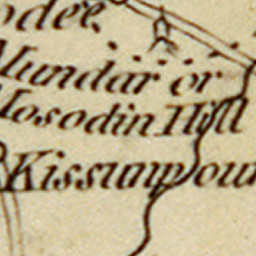 odee
Mundar or
Mosodin Hill
Kissunpour